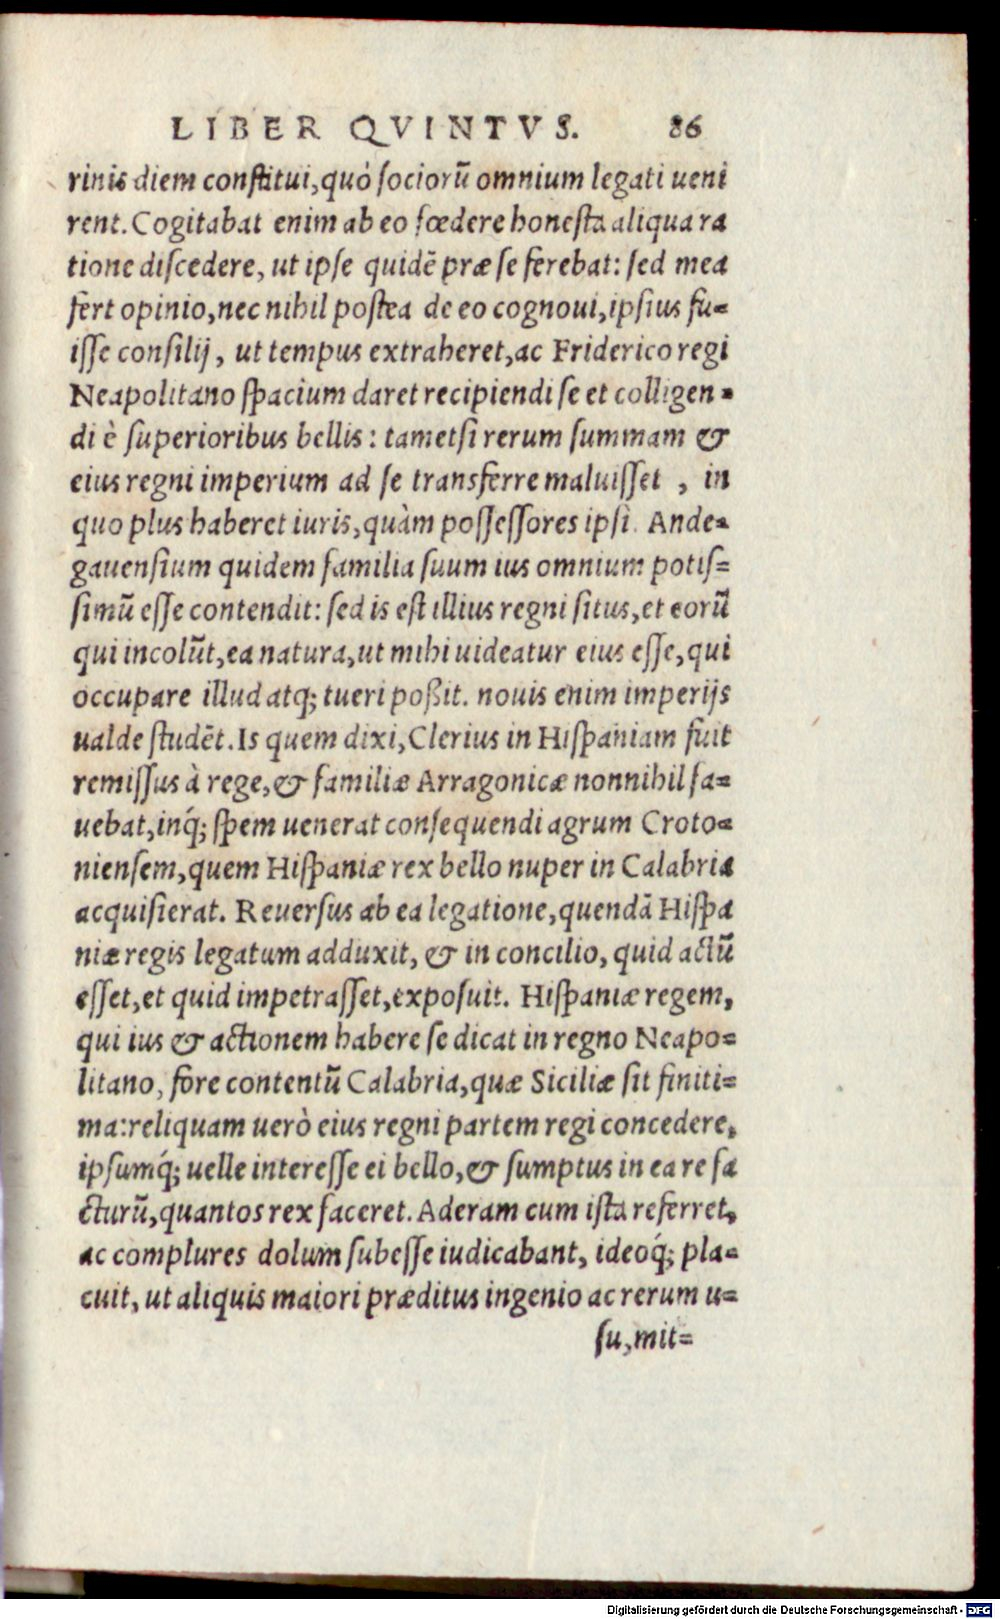 LIBER QVINTVS. 86
rinis diem constitui, quò sociorū omnium legati ueni
rent. Cogitabat enim ab eo fœdere honesta aliqua ra
tione discedere, ut ipse quidē præ se ferebat: sed mea
fert opinio, nec nihil postea de eo cognoui, ipsius fu=
isse consilij, ut tempus extraheret, ac Friderico regi
Neapolitano spacium daret recipiendi se et colligen=
di è superioribus bellis: tametsi rerum summam &
eius regni imperium ad se transferre maluisset, in
quo plus haberet iuris, quàm possessores ipsi. Ande=
gauensium quidem familia suum ius omnium potis=
simū esse contendit: sed is est illius regni situs, et eorū
qui incolūt, ea natura, ut mihi uideatur eius esse, qui
occupare illud atq; tueri poßit. nouis enim imperijs
ualde studēt. Is quem dixi, Clerius in Hispaniam fuit
remissus à rege, & familiæ Arragonicæ nonnihil fa=
uebat, inq́; spem uenerat consequendi agrum Croto=
niensem, quem Hispaniæ rex bello nuper in Calabria
acquisierat. Reuersus ab ea legatione, quendā Hispa
niæ regis legatum adduxit, & in concilio, quid actū
esset, et quid impetrasset, exposuit. Hispaniæ regem,
qui ius & actionem habere se dicat in regno Neapo=
litano, fore contentū Calabria, quæ Siciliæ sit finiti=
ma: reliquam uerò eius regni partem regi concedere,
ipsumq́; uelle interesse ei bello, & sumptus in ea re fa
cturū, quantos rex faceret. Aderam cum ista referret,
ac complures dolum subesse iudicabant, ideoq́; pla=
cuit, ut aliquis maiori præditus ingenio ac rerum u=
su, mit=
Digitalisierung gefördert durch die Deutsche Forschungsgemeinschaft - DFG